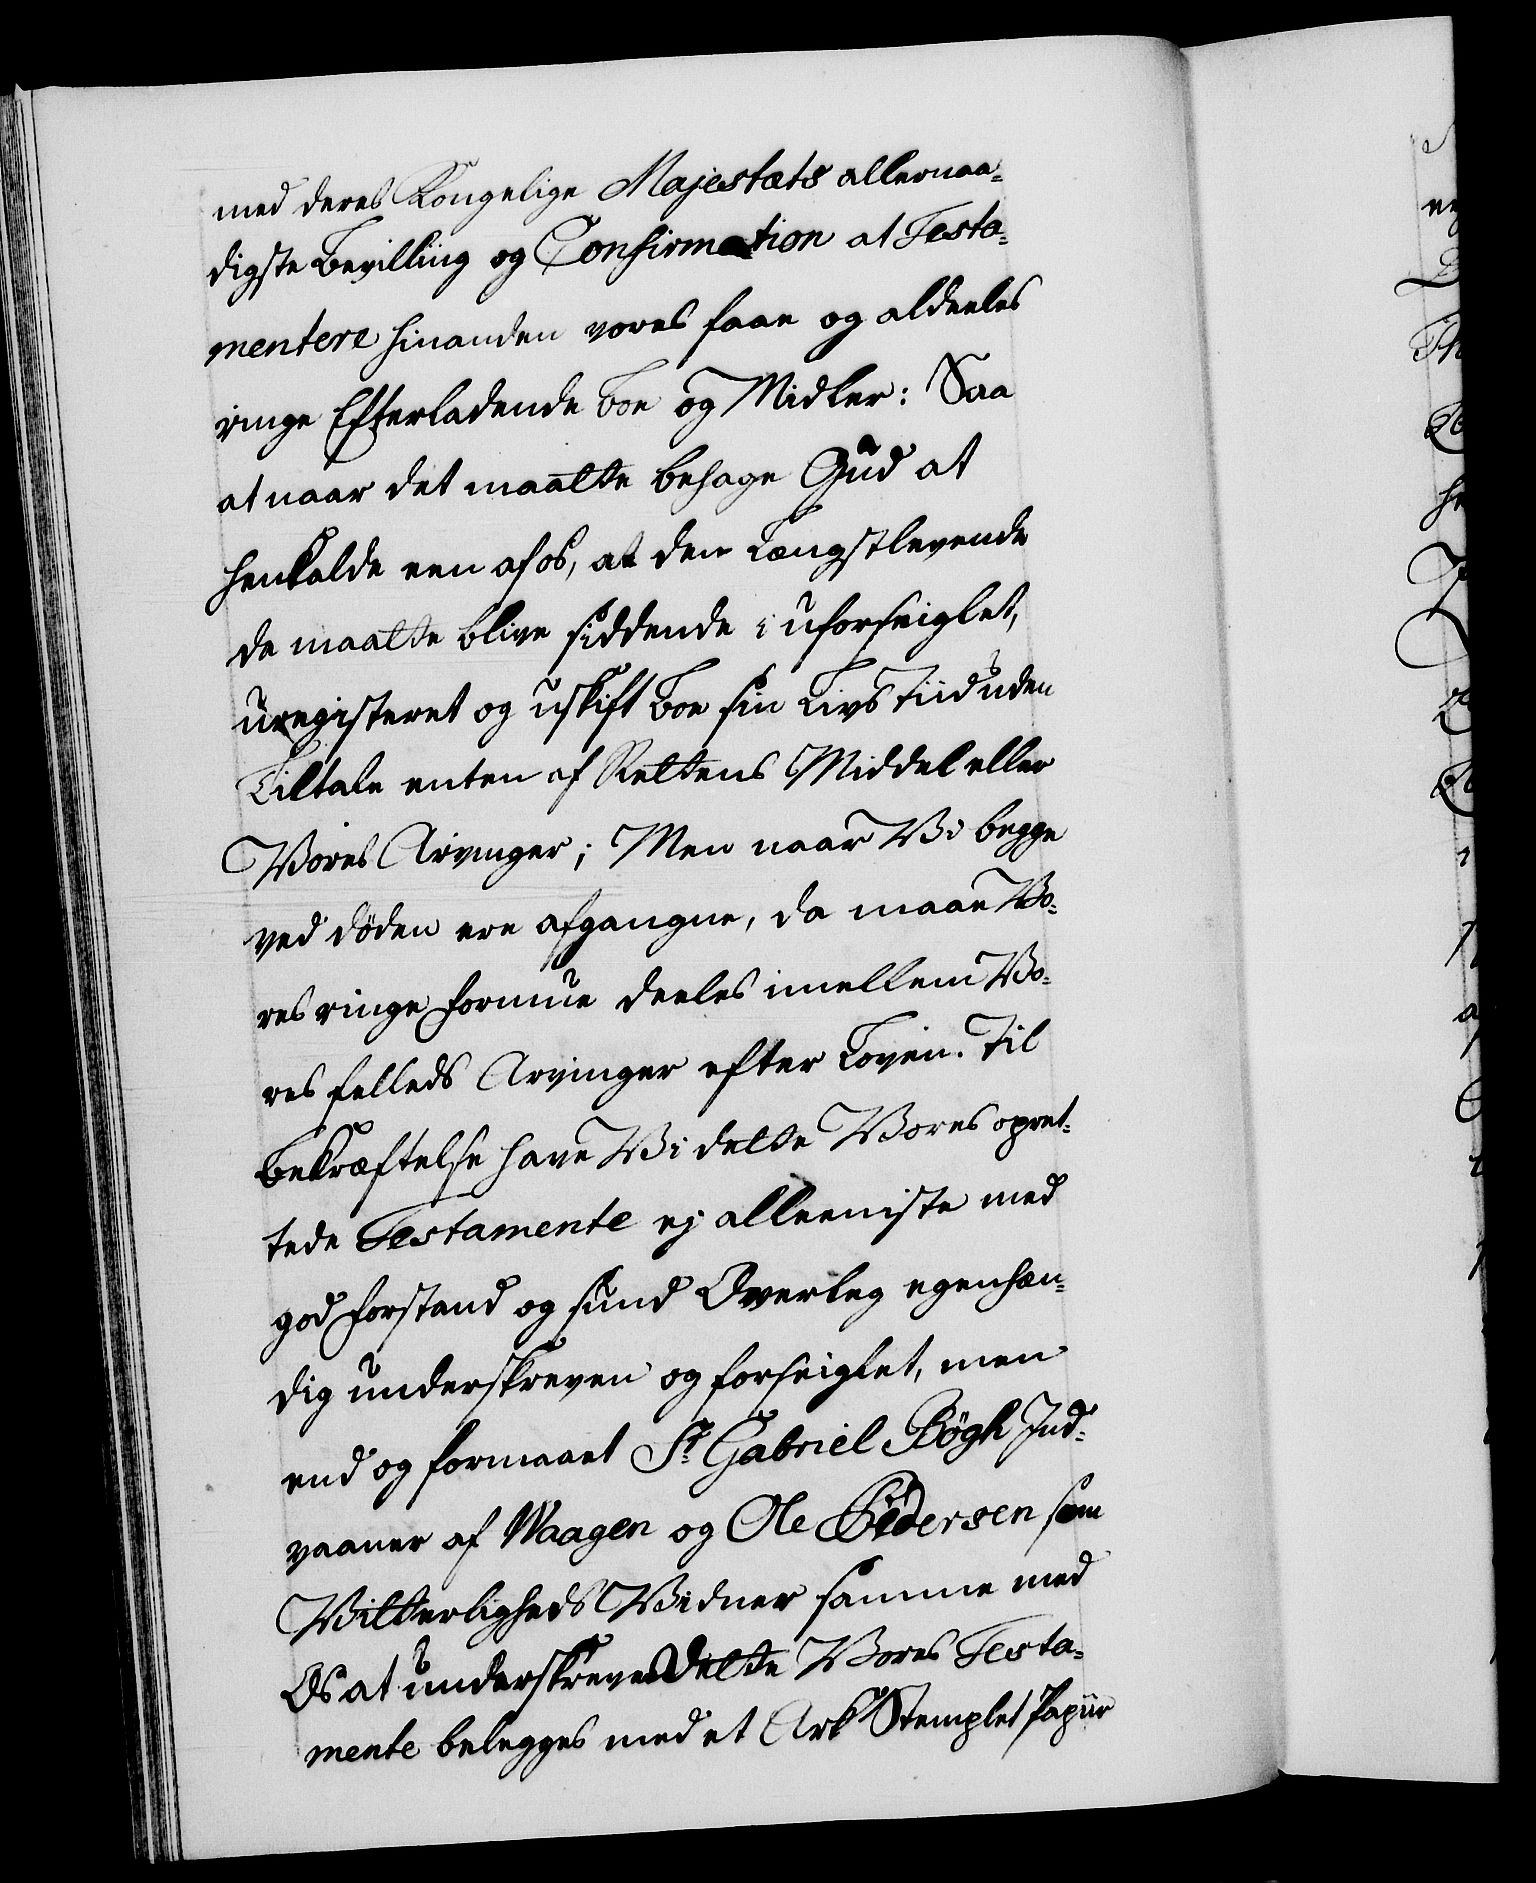 med deres Kongelige Majestæts allernaa-
digste Bevilling og Confirmation at Testa-
mentere hinanden vores faae og aldeeles
ringe Efterladende Boe og Midler: Saa
at naar det maatte behage Gud at
henkalde een af os, at den Længstlevende
da maatte blive siddende i uforseiglet,
uregisteret og uskift Boe sin Livs Tiid uden
Tiltale enten af Rettens Middel eller
Vores Arvinger; Men naar Vi begge
ved døden ere afgangne, da maae Vo-
res ringe formue deeles imellem Vo-
res felleds Arvinger efter Loven. Til
Bekræftelse have Vi dette Vores opret-
tede Testamente ej alleeniste med
god forstand og sund Overleg egenhæn-
dig underskreven og forseiglet, men
end og formaaet Sr. Gabriel Bøgh Ind-
vaaner af Waagen og Ole Pedersen som
Vitterligheds Vidner samme med
Os at underskreves dette Vores Testa-
mente belegges med et Ark Stemplet Papiir